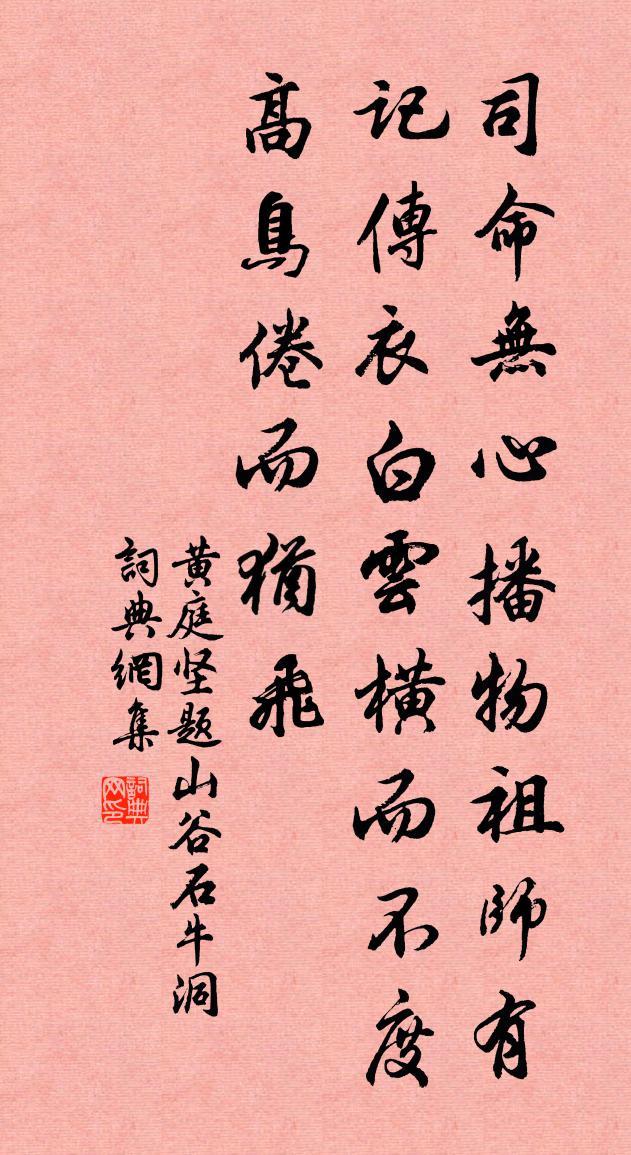 司命無心播物祖師有
記傳衣白雲橫而不度
高鳥倦而猶飛
黄庭坚题山谷石牛洞
詞典網集
詞典網印